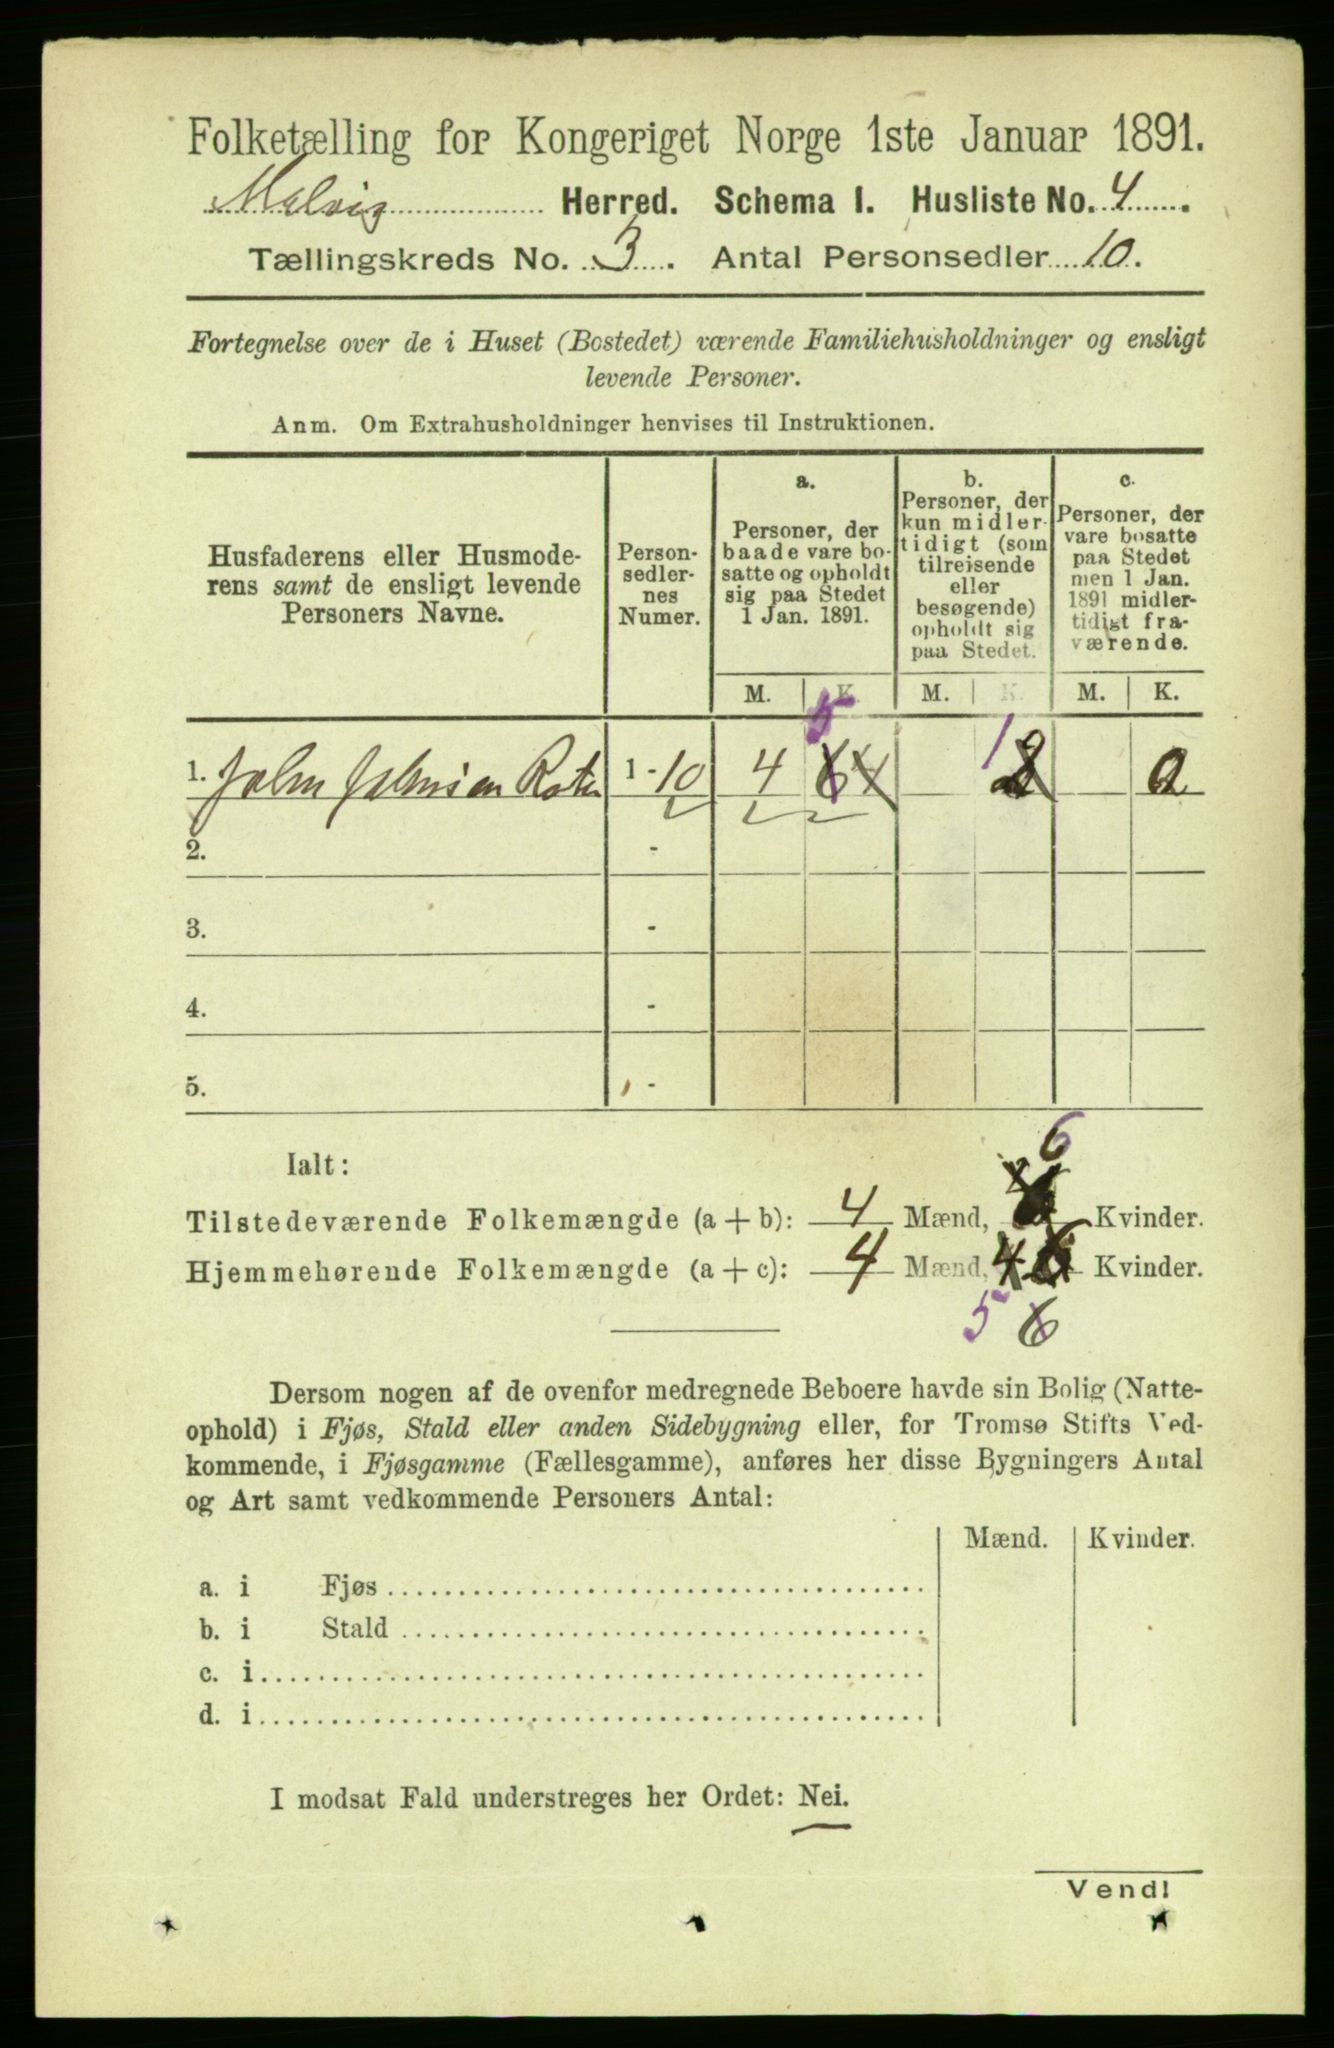 Folketælling for Kongeriget Norge 1ste Januar 1891.
Malvig Herred. Schema I. Husliste No. 4.
Tællingskreds No. 3. Antal Personsedler 10.
Fortegnelse over de i Huset (Bostedet) værende Familiehusholdninger og ensligt
levende Personer.
Anm. Om Extrahusholdninger henvises til Instruktionen.
Husfaderens eller Husmode-
rens samt de ensligt levende
Personers Navne.
Person-
sedler-
nes
Numer.
a.
Personer, der
baade vare bo-
satte og opholdt
sig paa Stedet
1 Jan. 1891.
b.
Personer, der
kun midler-
tidigt (som
tilreisende
eller
besøgende)
opholdt sig
paa Stedet.
c.
Personer, der
vare bosatte
paa Stedet
men 1 Jan.
1891 midler-
tidigt fra-
værende.
M. K. M. K. M. K.
5
1. John Johnsen 1 - 10 4 6 4 1 2
2. -
3. -
4. -
5. -
Ialt:
6
Tilstedeværende Folkemængde (a + b): 4 Mænd, Kvinder.
Hjemmehørende Folkemængde (a + c): 4 Mænd, 4 6 Kvinder.
5 6
Dersom nogen af de ovenfor medregnede Beboere havde sin Bolig (Natte-
ophold) i Fjøs, Stald eller anden Sidebygning eller, for Tromsø Stifts Ved-
kommende, i Fjøsgamme (Fællesgamme), anføres her disse Bygningers Antal
og Art samt vedkommende Personers Antal:
Mænd. Kvinder.
a. i Fjøs
b. i Stald
c. i
d. i
I modsat Fald understreges her Ordet: Nei.
Vend!